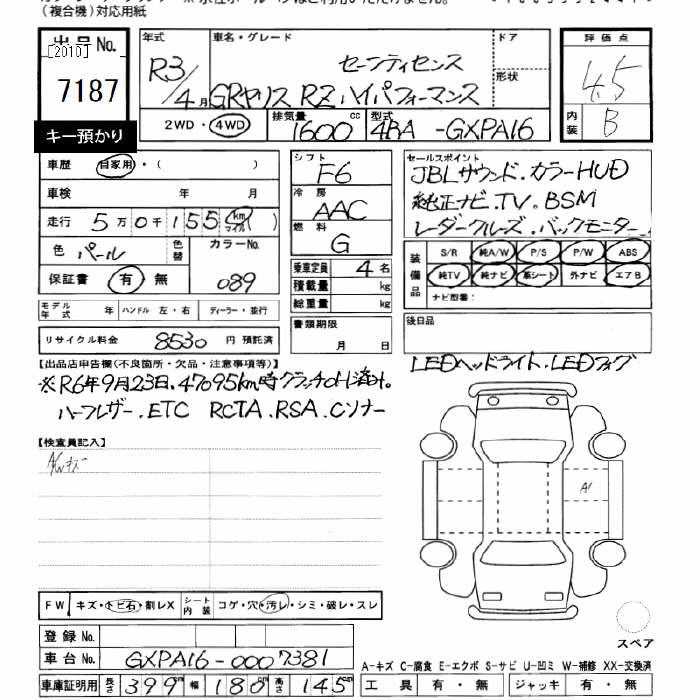 （複合機）対応用紙
出品No.
[2010]
7187
キー預かり
年式
R3/4月
車名・グレード
セーフティセンス
GRヤリス RZ ハイパフォーマンス
ドア
形状
2WD・4WD
排気量
1600cc
型式
4BA -GXPA16
評価点
4.5
内装
B
車歴 自家用・( )
車検 年 月
走行 5万0千155 km マイル
色 パール 色替 カラーNo. 089
保証書 有・無
モデル年式 年 ハンドル 左・右 ディーラー・並行
リサイクル料金 8530円 預託済
シフト
F6
冷房
AAC
燃料
G
乗車定員 4名
積載量 kg
総重量 kg
書類期限
月 日
セールスポイント
JBLサウンド.カラーHUD
純正ナビ.TV.BSM
レーダークルーズ.バックモニター
装備品
S/R 純A/W P/S P/W ABS
純TV 純ナビ 革シート 外ナビ エアB
ナビ型番：
後日品
LEDヘッドライト.LEDフォグ
【出品店申告欄（不良箇所・欠品・注意事項等）】
※R6年9月23日.47095km時クラッチOH済み.
ハーフレザー.ETC RCTA.RSA.Cソナー
【検査員記入】
AWキズ
A1
FW キズ・トビ石・割レX シート内装 コゲ・穴・汚レ・シミ・破レ・スレ
登録No.
車台No. GXPA16-0007381
車庫証明用 長さ 399 幅 180 高さ 145 cm
スペア
A-キズ C-腐食 E-エクボ S-サビ U-凹ミ W-補修 XX-交換済
工具 有・無 ジャッキ 有・無